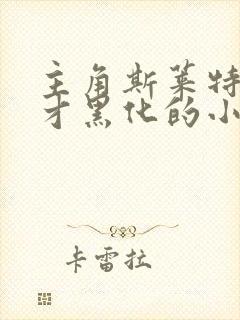 主角斯莱特
才黑化的小
卡雷拉